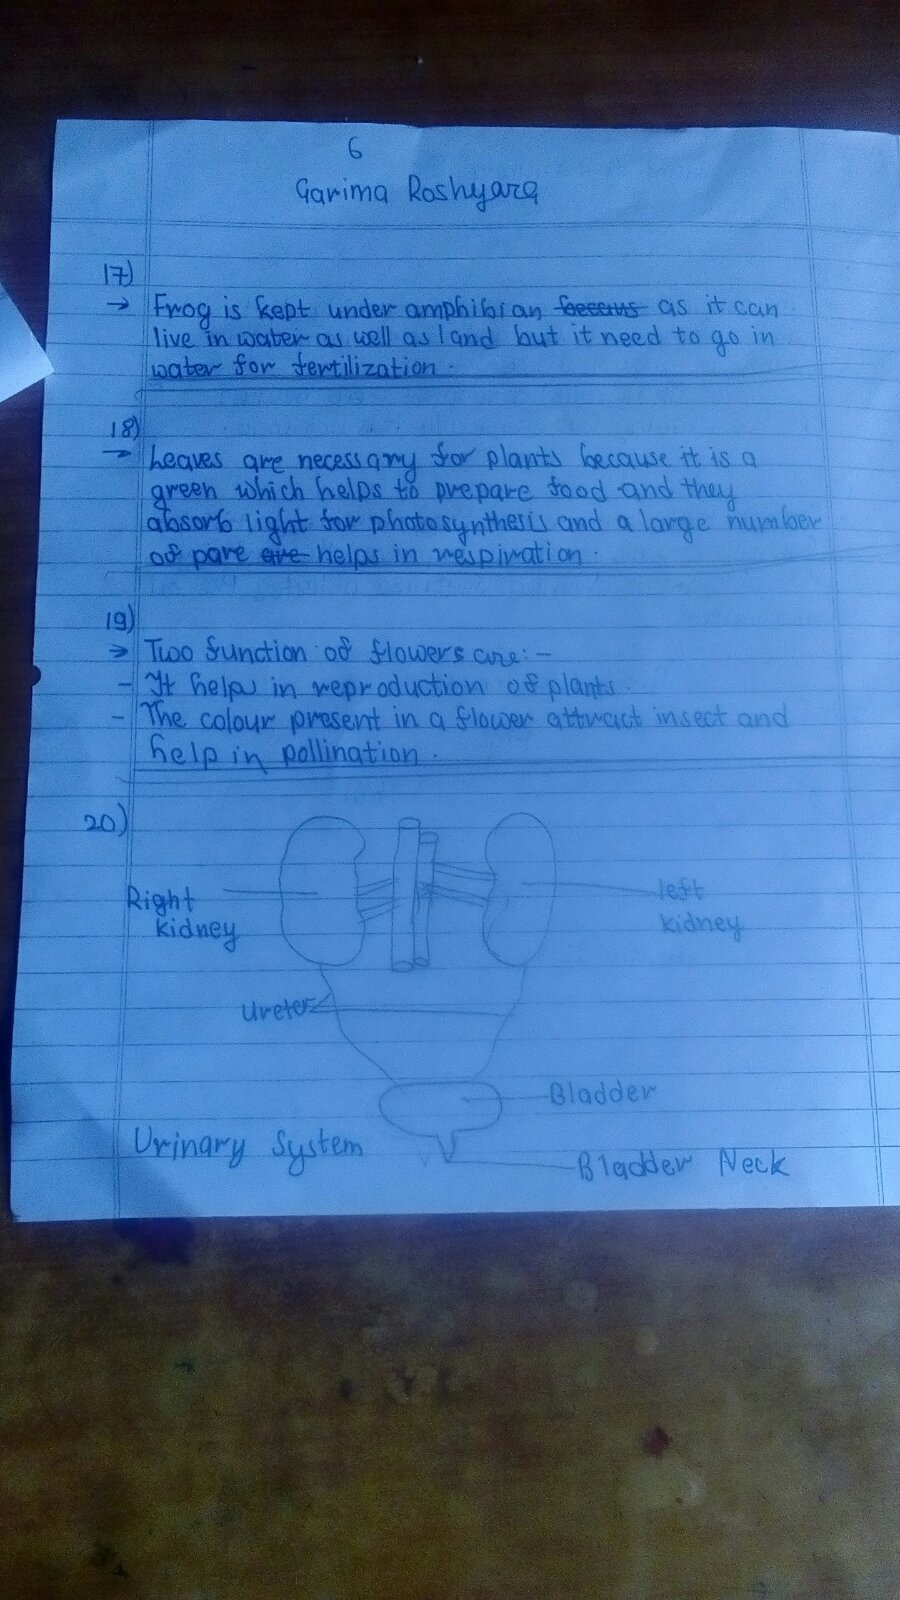 6
Garima Roshyara
17)
→ Frog is kept under amphibian as it can
live in water as well as land but it need to go in
water for fertilization.
18)
→ Leaves are necessary for plants because it is a
green which helps to prepare food and they
absorb light for photosynthesis and a large number
of pare are helps in respiration.
19)
→ Two function of flowers are:-
- It helps in reproduction of plants.
- The colour present in a flower attract insect and
help in pollination.
20)
Right
kidney
left
kidney
Ureter
Bladder
Urinary System
Bladder Neck